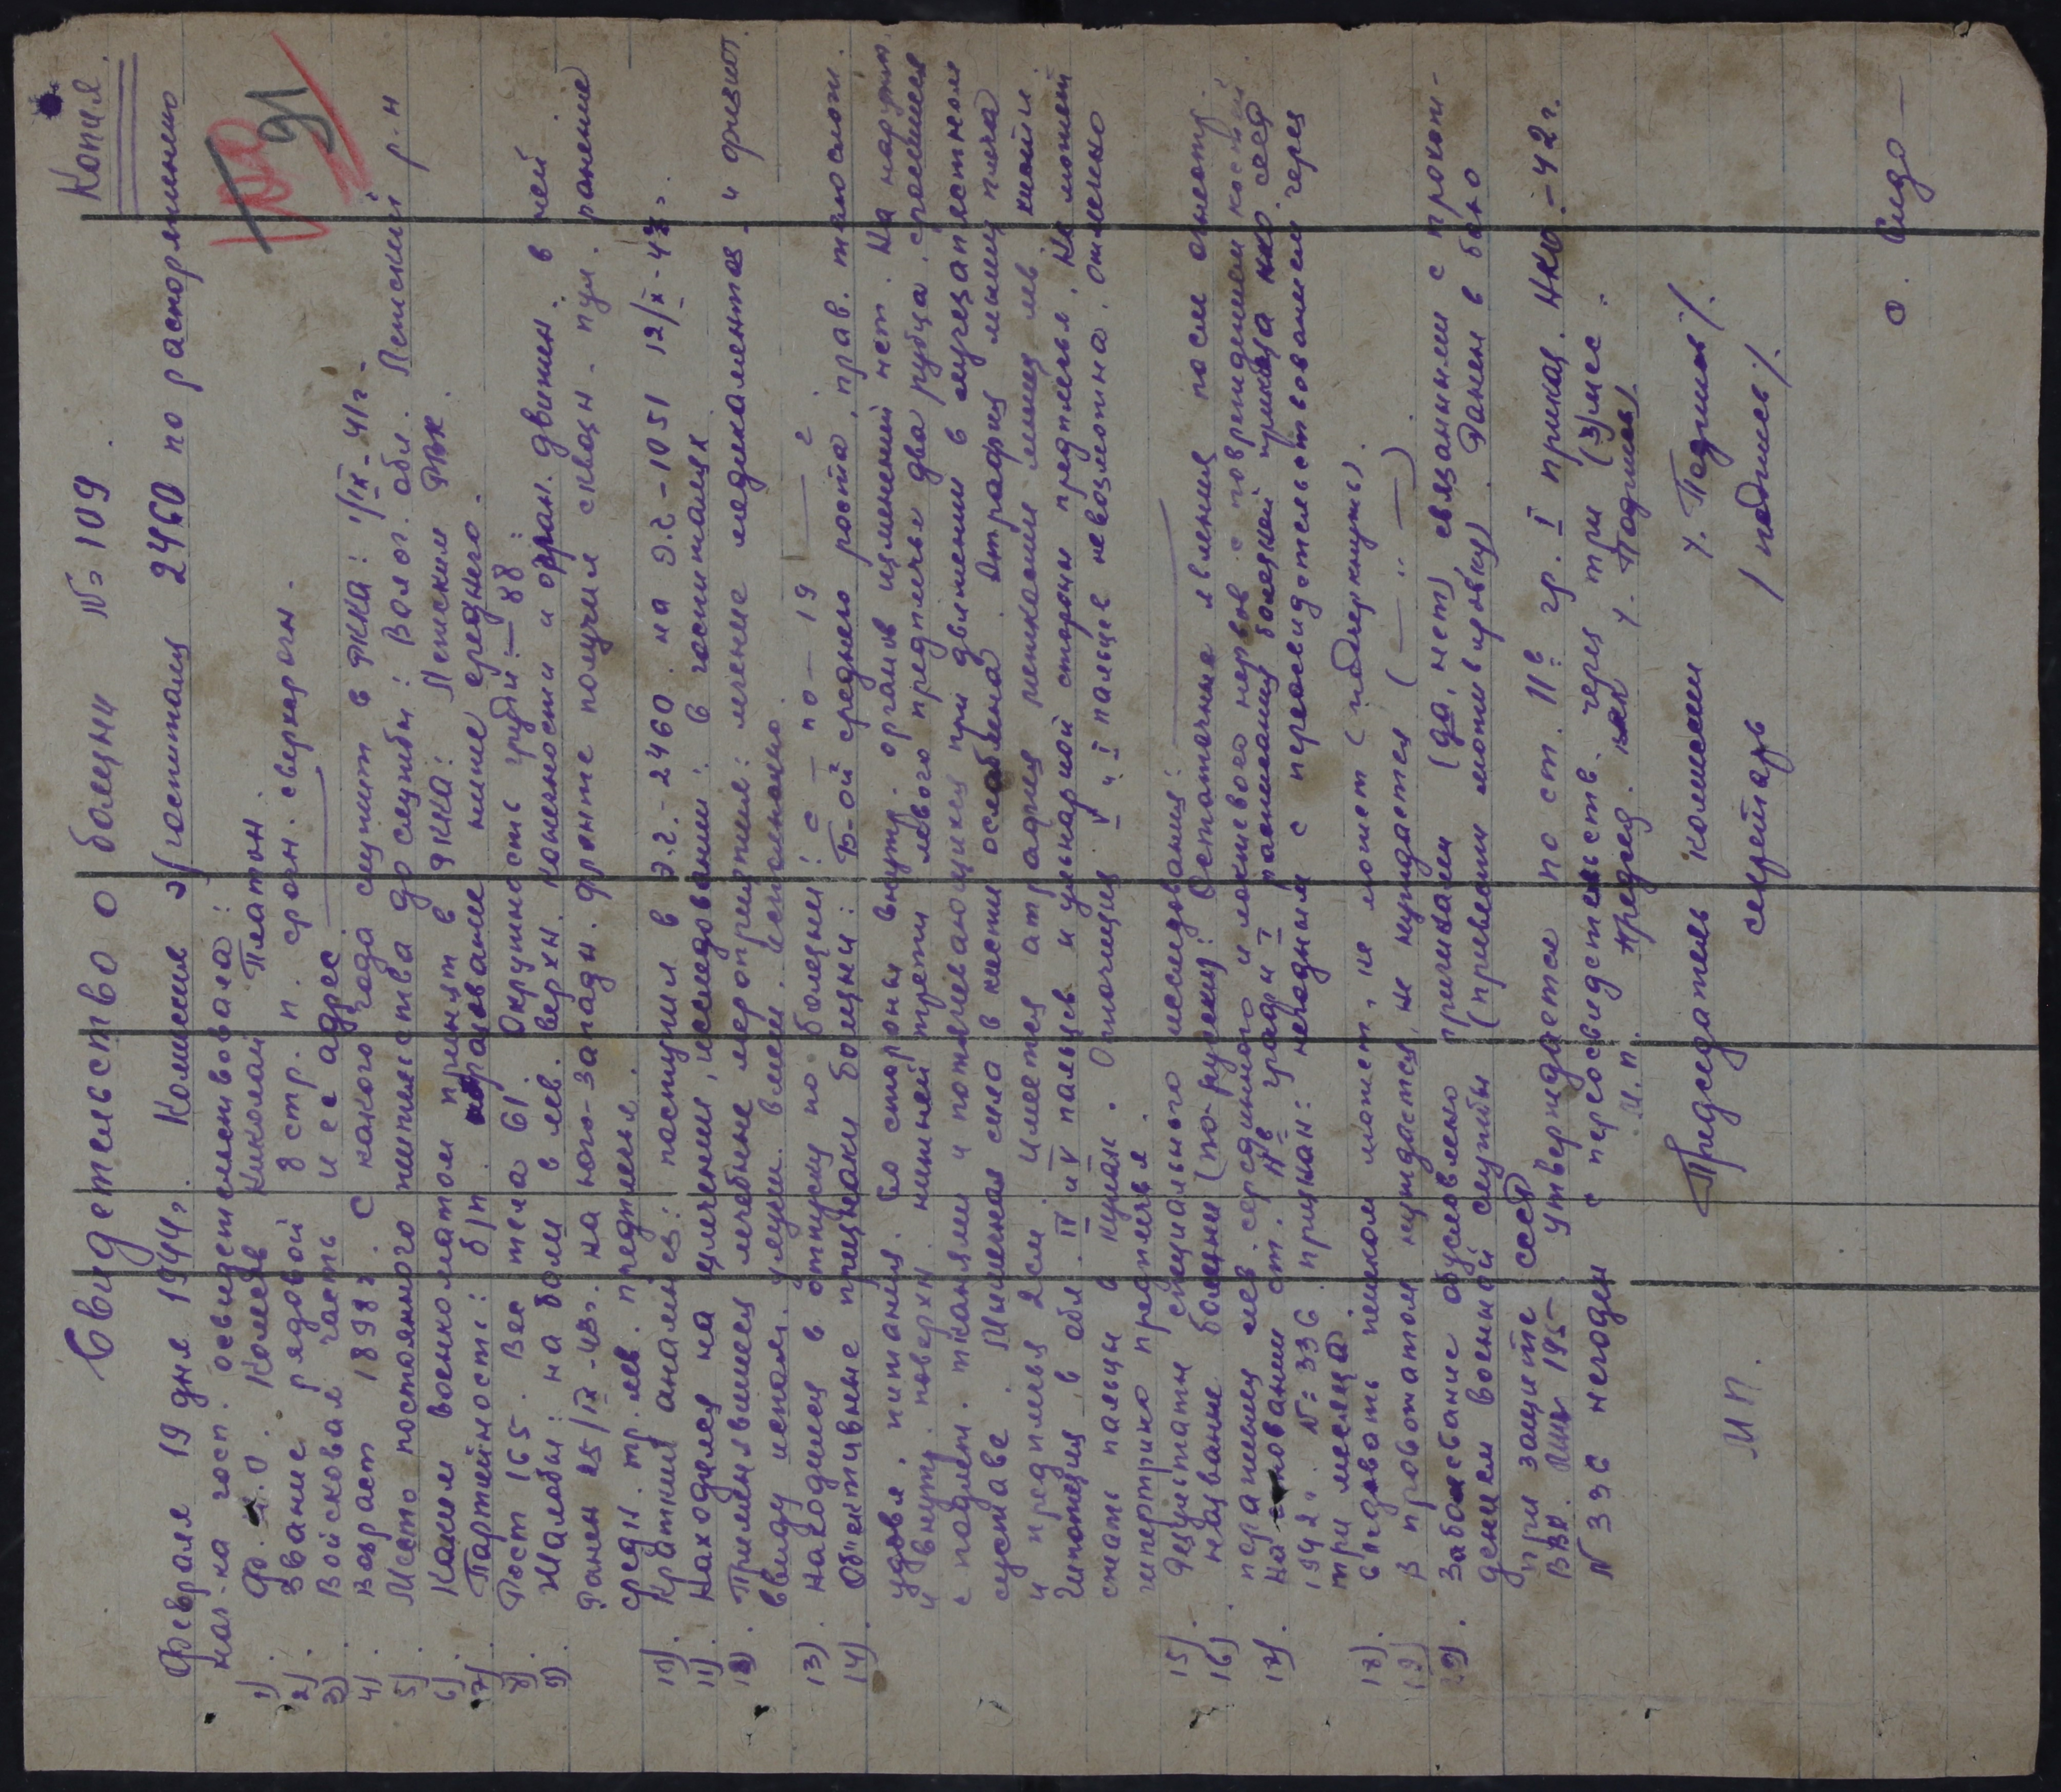 Копия.
Свидетельство о болезни № 109.
91
Февраля 19 дня 1944г. Комиссия эвгоспиталя 2460 по распоряжению
нач-ка госп. освидетельствовала:
1) Ф.И.О. Комлев Николай Платон.
2). Звание рядовой 8 стр. п. срок. сверхсрочн.
3) Войсковая часть и ее адрес
4) Возраст 1898г. С какого года служит в РККА: 1/IX-41г.
5). Место постоянного жительства до службы: Волог. обл. Ленский р-н
6). Каким военкоматом призват в РККА: Ленским РВК.
7). Партийность: б/п. образование ниже среднего.
8). Рост 165. Вес тела 61. Окружность груди: — 88:
9). Жалобы: на боли в лев. верхн. конечности и огран. движен. в ней.
Ранен 25/IX-43г. на юго-западн. фронте получил сквозн. пул. ранение
средн. тр. лев. предплечья.
10). Краткий анамнез: поступил в Э.Г.-2460. из Э.Г.-1051 12/X-43г.
11). Находился на излечении, исследовании: в госпиталях
12). Применявшиеся лечебные мероприятия: лечение медикаментоз. и физиот.
ввиду использ. улучш. в леч. использовано.
13). Находился в отпуску по болезни: с — по — 19 — г
14). Объективные признаки болезни: Б-ой среднего роста, прав. телослож.
удовл. питания. Со стороны внутр. органов изменений нет. На наружн.
и внутр. поверхн. нижней трети левого предплечья два рубца, спаянных
с подлеж. тканями и потягивающихся при движении в лучезапястном
суставе. Мышечная сила в кисти ослаблена. Атрофия мышц плеча
и предплечья 2см. Имеется атрофия мышц лев. кисти.
Гипотезия в обл. IV и V пальцев и ульнарной стороны предплечья. Не может
сжать пальцы в кулак. Оппозиция V и I пальцев невозможна, отмечено
гипертрихо предплечья.
15). Результаты специального исследования: —
16). название болезни (по-русски): Остаточные явления после огнестр.
ранения лев. срединного и локтевого нервов с повреждением костей.
17). На основании ст. IIв графы I расписания болезней приказа НКО СССР
1942г. № 336 признан: негодным с переосвидетельствованием через
три месяца
18). Следовать пешком может, не может (подчеркнуть).
19) В провожатом нуждается, не нуждается ( — " — )
20). Заболевание обусловлено причинами (да, нет), связанными с прохож-
дением военной службы (привести мотивировку). Ранен в бою
при защите СССР
ВВК. утверждается по ст. IIв гр. I приказ. НКО.-42г.
N 336 негоден с переосвидетельств. через три (3) мес.
М.П. Председ. ВВК /. Подпись/
Председатель комиссии /. Подпись/.
М П. секретарь / подпись/.